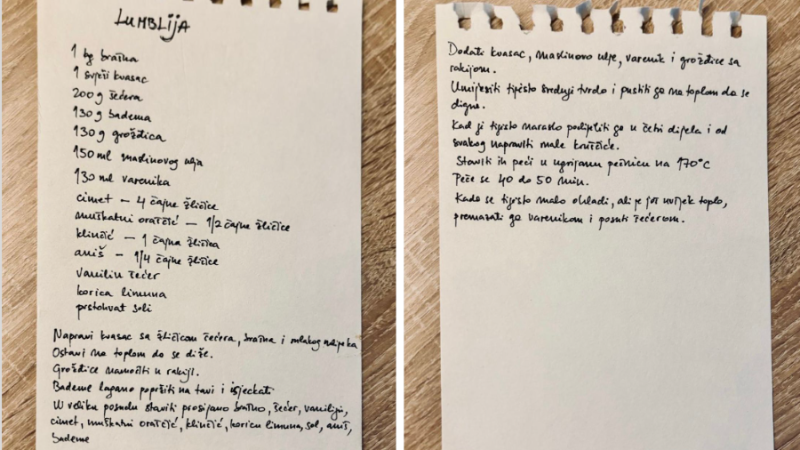 LUMBLIJA
1 kg brašna
1 svježi kvasac
200 g šećera
130 g badema
130 g grožđica
150 ml maslinovog ulja
130 ml varenika
cimet – 4 čajne žličice
muškatni oraščić – 1/2 čajne žličice
klinčić – 1 čajna žličica
aniš – 1/4 čajne žličice
vanilin šećer
korica limuna
prstohvat soli
Napravi kvasac sa žličicom šećera, brašna i mlakog mlijeka
Ostavi na toplom da se diže.
Grožđice namočiti u rakiji.
Bademe lagano popržiti na tavi i isjeckati
U veliku posudu staviti prosijano brašno, šećer, vaniliju,
cimet, muškatni oraščić, klinčić, koricu limuna, sol, aniš,
bademe
Dodati kvasac, maslinovo ulje, varenik i grožđice sa
rakijom.
Umijesiti tijesto srednje tvrdo i pustiti ga na toplom da se
digne.
Kad je tijesto naraslo podijeliti ga u četri dijela i od
svakog napraviti male kruščiće.
Staviti ih peći u ugrijanu pećnicu na 170°C
Peče se 40 do 50 min.
Kada se tijesto malo ohladi, ali je još uvijek toplo,
premazati ga varenikom i posuti šećerom.